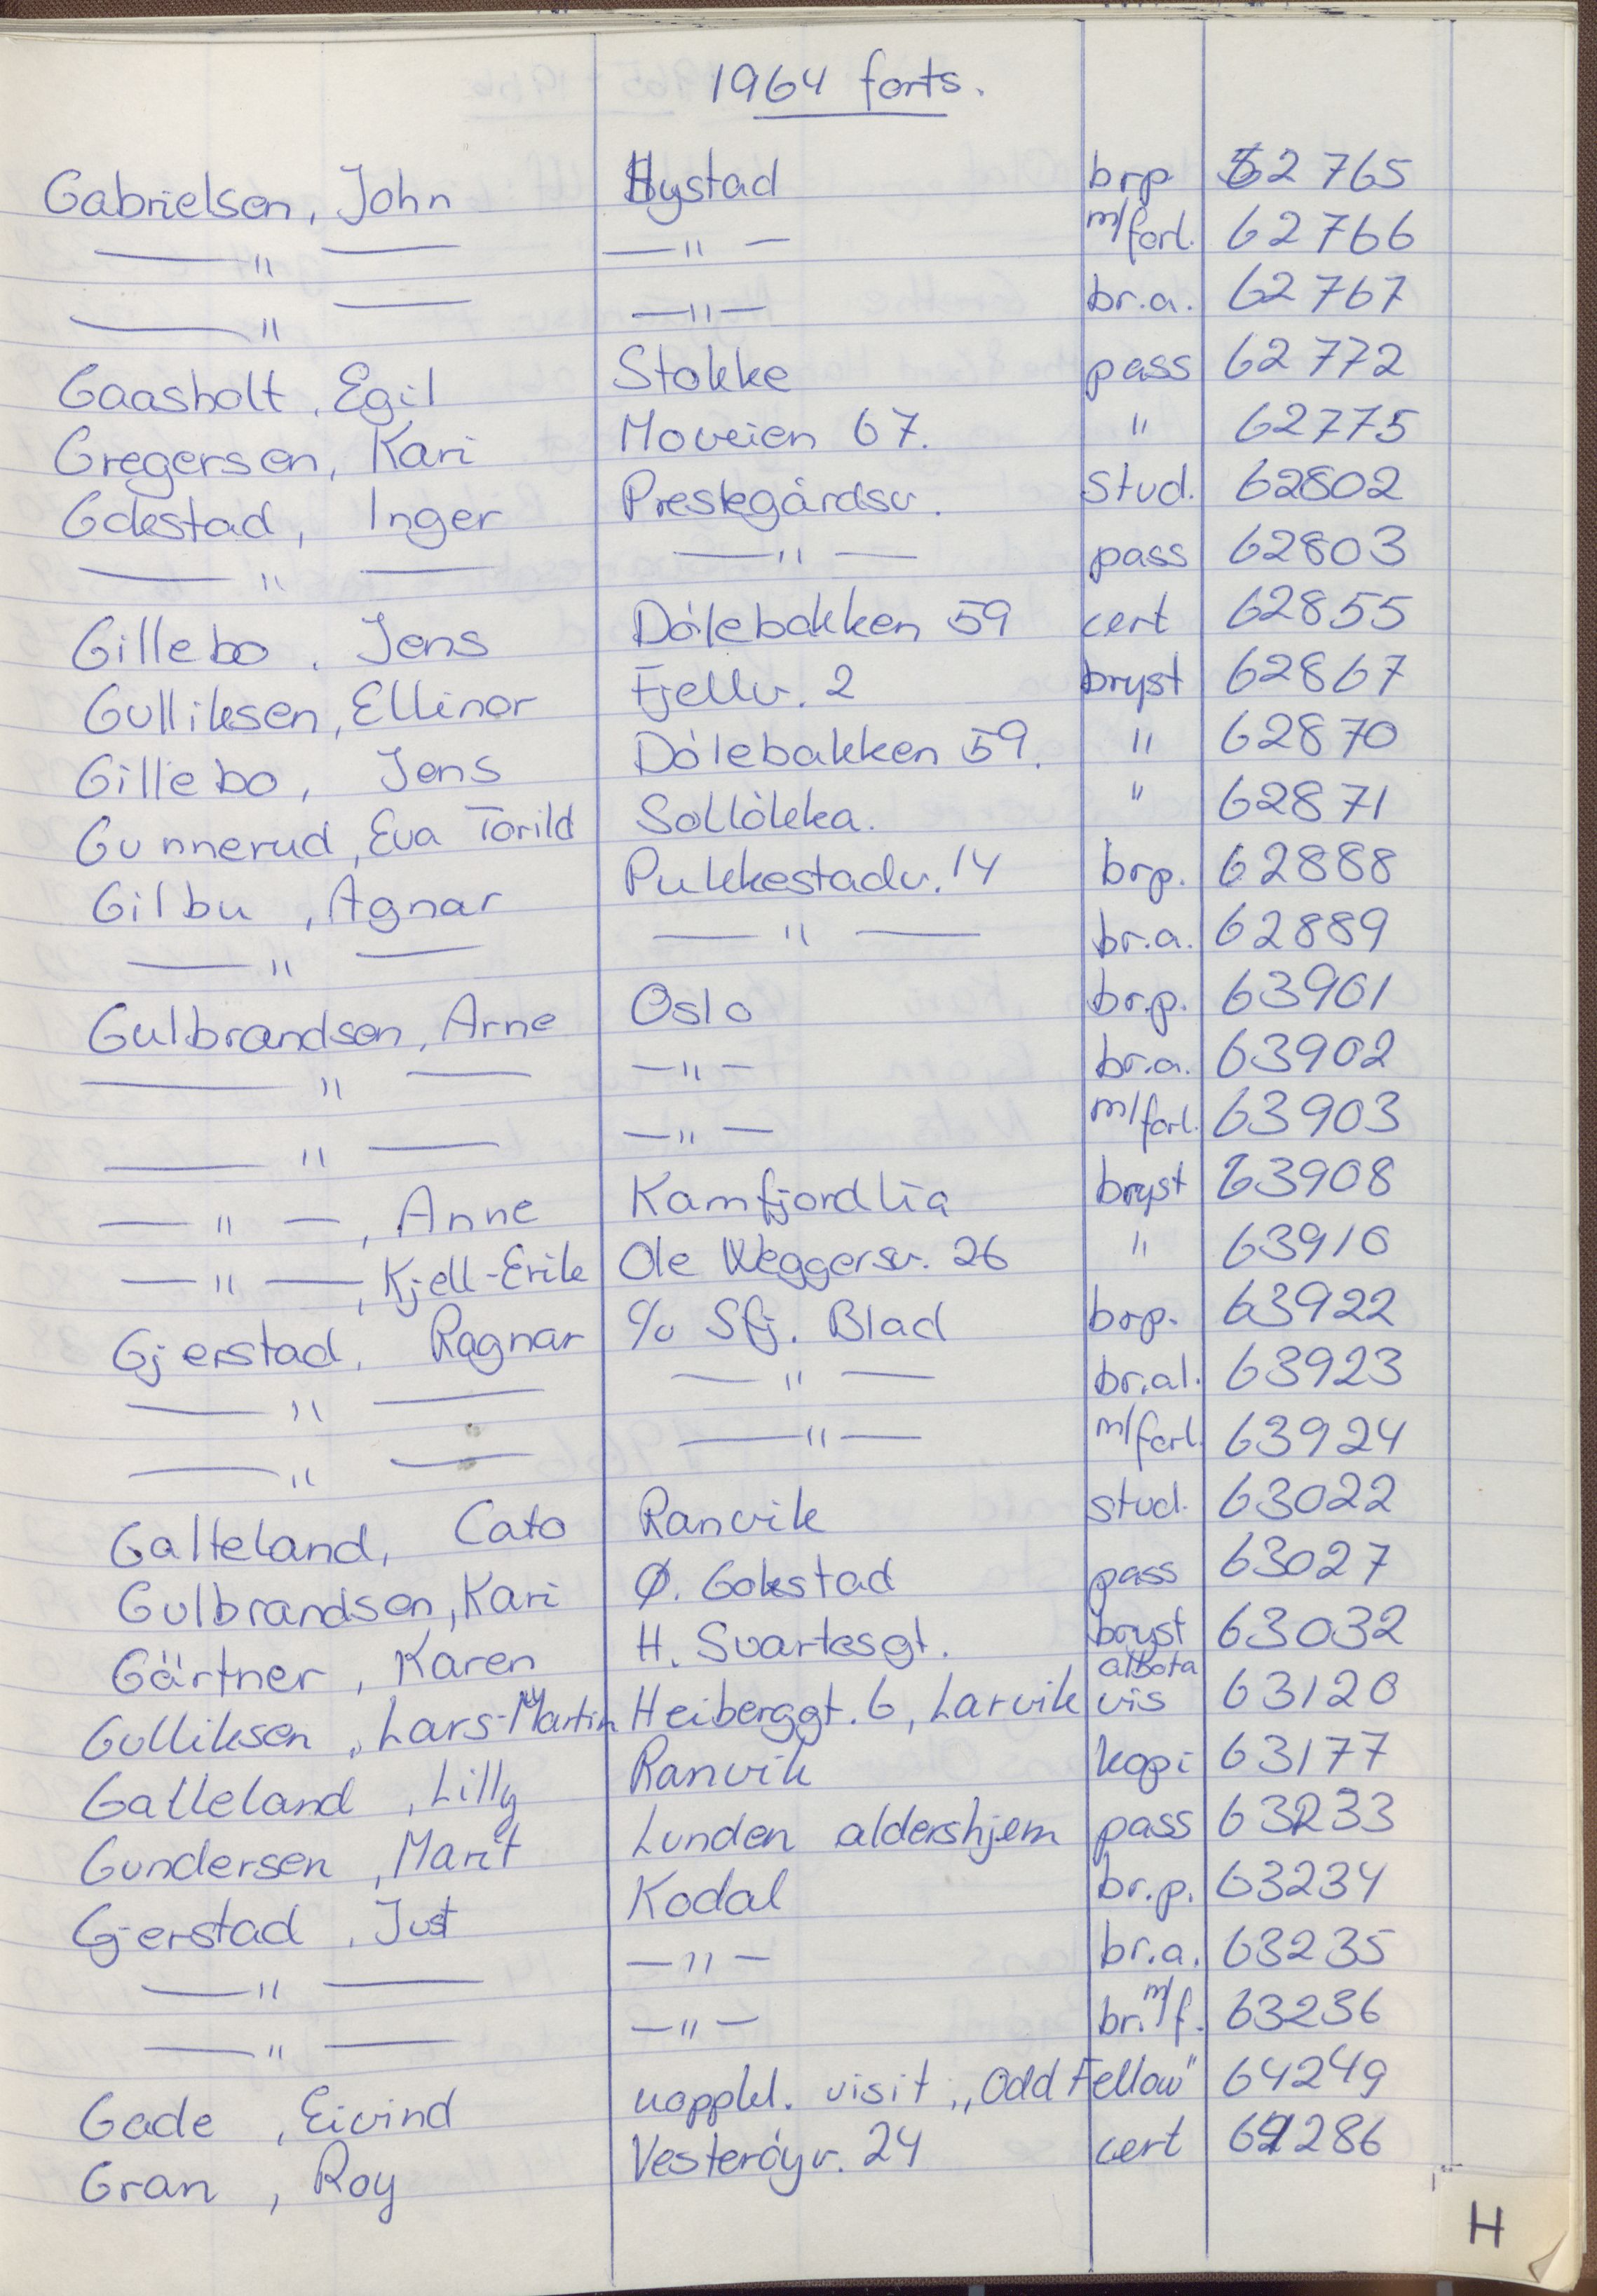 1964 forts.
Gabrielsen, John Hystad brp 62765
— " — — " — m/forl. 62766
— " — — " — br.a. 62767
Gaasholt, Egil Stokke pass 62772
Gregersen, Kari Moveien 67. " 62775
Gokstad, Inger Prestegårdsv. stud. 62802
— " — — " — pass 62803
Gillebo, Jens Dölebakken 59 cert 62855
Gulliksen, Ellinor Fjellv. 2 bryst 62867
Gillebo, Jens Dölebakken 59. " 62870
Gunnerud, Eva Torild Sollökka. " 62871
Gilbu, Agnar Pukkestadv. 14 brp. 62888
— " — — " — br.a. 62889
Gulbrandsen, Arne Oslo br.p. 63901
— " — — " — br.a. 63902
— " — — " — m/forl. 63903
— " —, Anne Kamfjordlia bryst 63908
— " —, Kjell-Erik Ole Weggersv. 26 " 63910
Gjerstad, Ragnar c/o Sfj. Blad brp. 63922
— " — — " — br.al. 63923
— " — — " — m/forl. 63924
Galteland, Cato Ranvik stud. 63022
Gulbrandsen, Kari Ø. Gokstad pass 63027
Gärtner, Karen H. Svartesgt. bryst 63032
Gulliksen, Lars-Martin Heiberggt. 6, Larvik vis 63120
Galteland, Lilly Ranvik kopi 63177
Gundersen, Marit Lunden aldershjem pass 63233
Gjerstad, Just Kodal br.p. 63234
— " — — " — br.a. 63235
— " — — " — br. m/f. 63236
Gade, Eivind uoppkl. visit „Odd Fellow" 64249
Gran, Roy Vesteröyv. 24 cert 64286
H